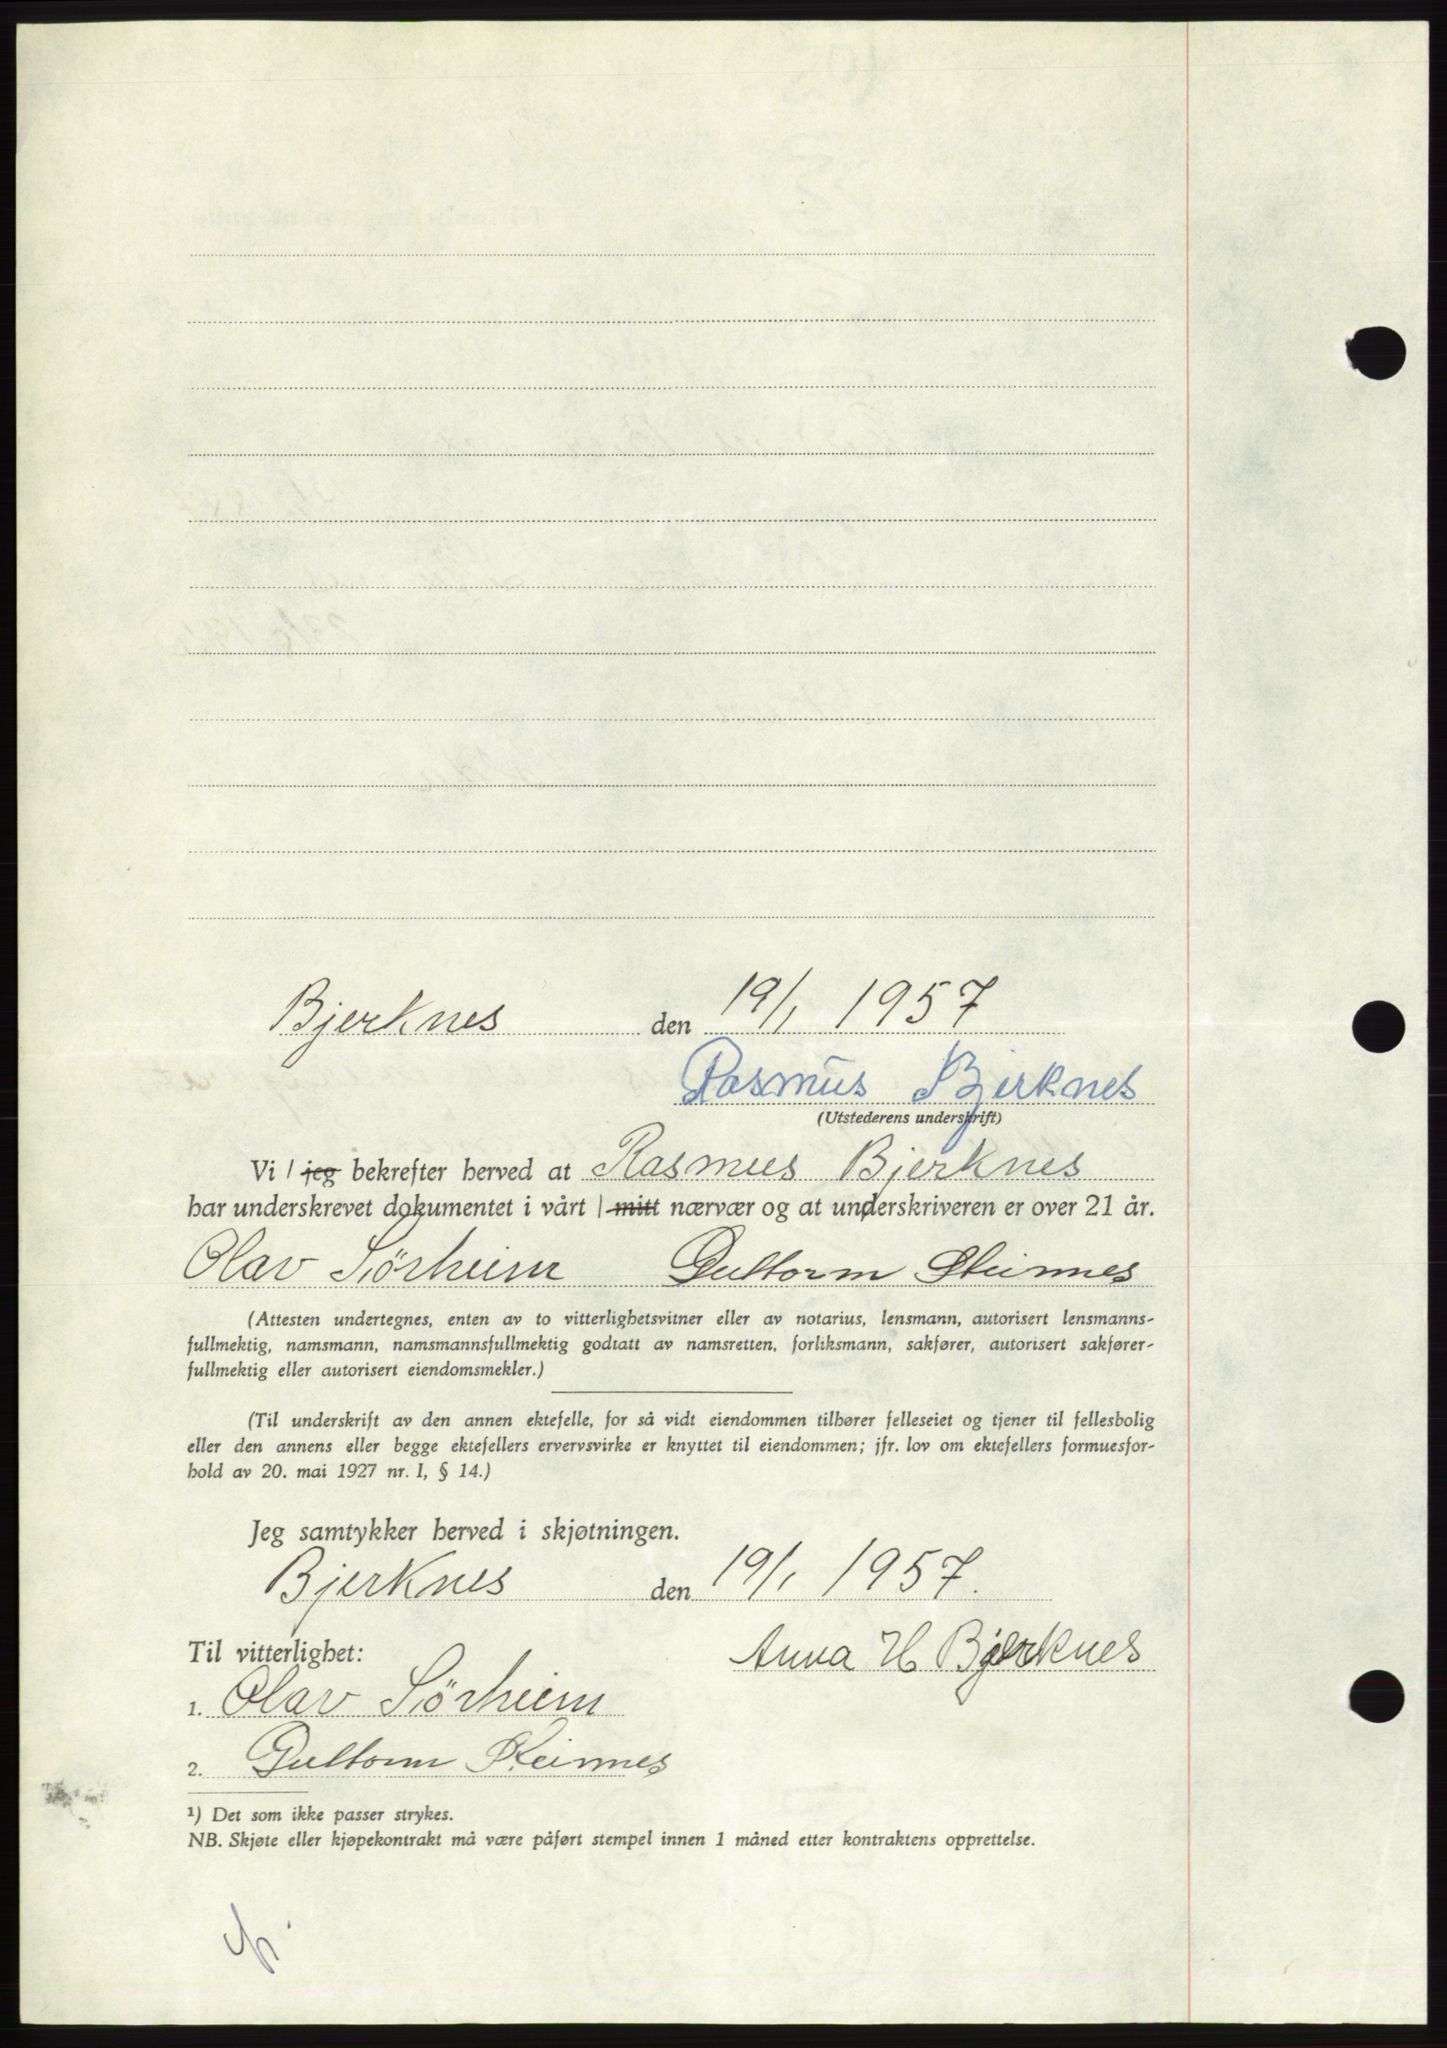 Bjerknes den 19/1 1957
Rasmus Bjerknes
(Utstederens underskrift)
Vi / jeg bekrefter herved at Rasmus Bjerknes
har underskrevet dokumentet i vårt / mitt nærvær og at underskriveren er over 21 år.
Olav Sörheim Guttorm Steinnes
(Attesten undertegnes, enten av to vitterlighetsvitner eller av notarius, lensmann, autorisert lensmanns-
fullmektig, namsmann, namsmannsfullmektig godtatt av namsretten, forliksmann, sakfører, autorisert sakfører-
fullmektig eller autorisert eiendomsmekler.)
(Til underskrift av den annen ektefelle, for så vidt eiendommen tilhører felleseiet og tjener til fellesbolig
eller den annens eller begge ektefellers ervervsvirke er knyttet til eiendommen; jfr. lov om ektefellers formuesfor-
hold av 20. mai 1927 nr. 1, § 14.)
Jeg samtykker herved i skjøtningen.
Bjerknes den 19/1 1957.
Til vitterlighet:
Anna H Bjerknes
1. Olav Sörheim
2. Guttorm Steinnes
¹) Det som ikke passer strykes.
NB. Skjøte eller kjøpekontrakt må være påført stempel innen 1 måned etter kontraktens opprettelse.